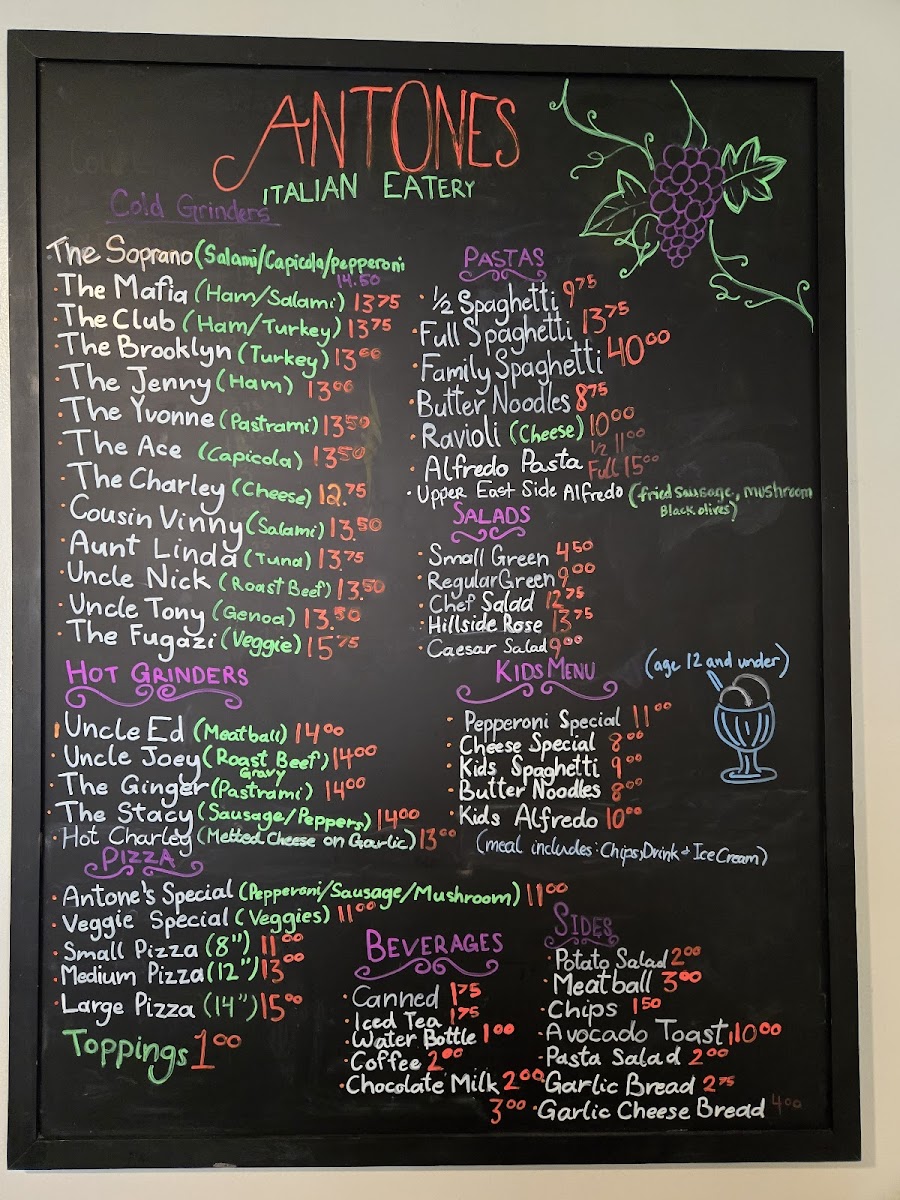 ANTONES
ITALIAN EATERY
Cold Grinders
The Soprano (Salami/Capicola/Pepperoni
14.50
·The Mafia (Ham/Salami) 13.75
·The Club (Ham/Turkey) 13.75
·The Brooklyn (Turkey) 13.00
·The Jenny (Ham) 13.00
·The Yvonne (Pastrami) 13.50
·The Ace (Capicola) 13.50
·The Charley (Cheese) 12.75
·Cousin Vinny (Salami) 13.50
·Aunt Linda (Tuna) 13.75
·Uncle Nick (Roast Beef) 13.50
·Uncle Tony (Genoa) 13.50
·The Fugazi (Veggie) 15.75
HOT GRINDERS
·Uncle Ed (Meatball) 14.00
·Uncle Joey (Roast Beef) 14.00
Gravy
·The Ginger (Pastrami) 14.00
·The Stacy (Sausage/Peppers) 14.00
·Hot Charley (Melted Cheese on Garlic) 13.00
PIZZA
·Antone's Special (Pepperoni/Sausage/Mushroom) 11.00
·Veggie Special (Veggies) 11.00
·Small Pizza (8") 11.00
·Medium Pizza (12") 13.00
·Large Pizza (14") 15.00
Toppings 1.00
PASTAS
·1/2 Spaghetti 9.75
·Full Spaghetti 13.75
·Family Spaghetti 40.00
·Butter Noodles 8.75
·Ravioli (Cheese) 10.00
1/2 11.00
·Alfredo Pasta Full 15.00
·Upper East Side Alfredo (fried sausage, mushroom
Black olives)
SALADS
·Small Green 4.50
·Regular Green 9.00
·Chef Salad 12.75
·Hillside Rose 13.75
·Caesar Salad 9.00
KIDS MENU
(age 12 and under)
·Pepperoni Special 11.00
·Cheese Special 8.00
·Kids Spaghetti 9.00
·Butter Noodles 8.00
·Kids Alfredo 10.00
(meal includes: Chips, Drink + Ice Cream)
BEVERAGES
·Canned 1.75
·Iced Tea 1.75
·Water Bottle 1.00
·Coffee 2.00
·Chocolate Milk 2.00
3.00
SIDES
·Potato Salad 2.00
·Meatball 3.00
·Chips 1.50
·Avocado Toast 10.00
·Pasta Salad 2.00
·Garlic Bread 2.75
·Garlic Cheese Bread 4.00